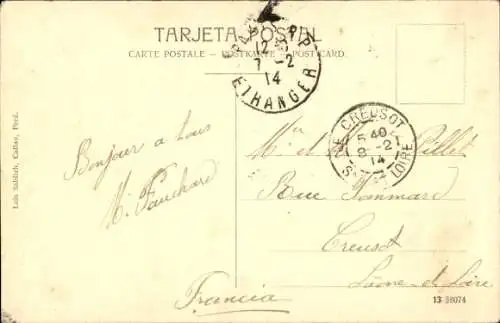 TARJETA POSTAL
CARTE POSTALE — POSTKARTE — POST CARD.
PARIS R.P.
12
7 -2
14
ETRANGER
LE CREUSOT
5 40
8 -2
14
S. & LOIRE
Bonjour à tous
M. Fauchard
Mr et Pillet
Rue Pommard
Creusot
Saone-et-Loire
Francia
Luis Sablich, Callao, Perú.
13 38074